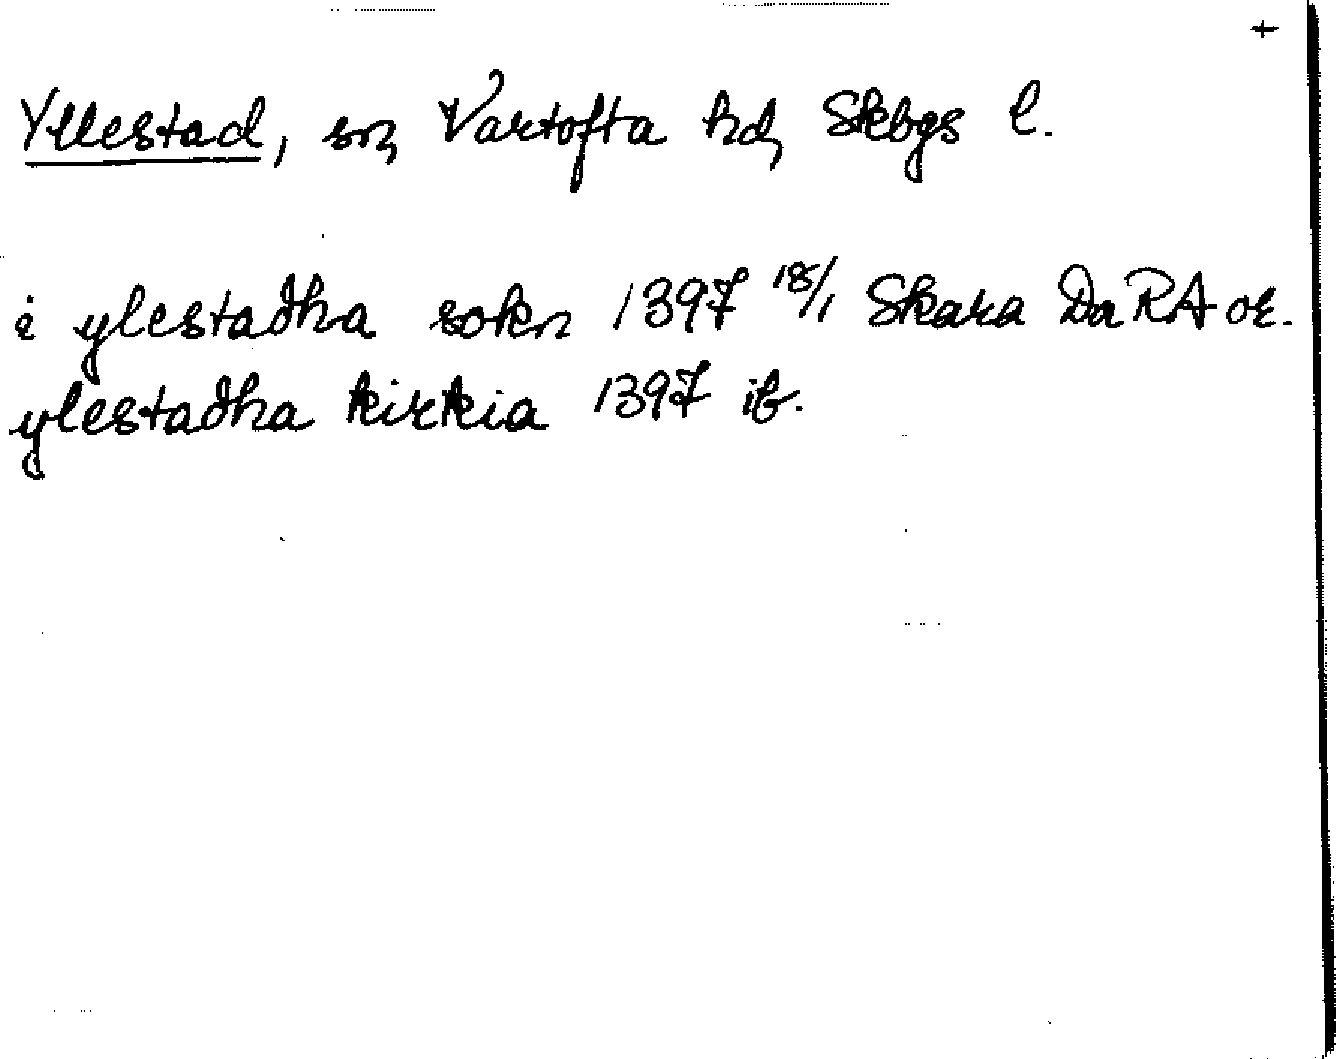 +
Yllestad, sn, Vartofta hd, Skbgs l.
i ylestadha sokn 1397 18/1 Skara Da RA or.
ylestadha kirkia 1397 ib.